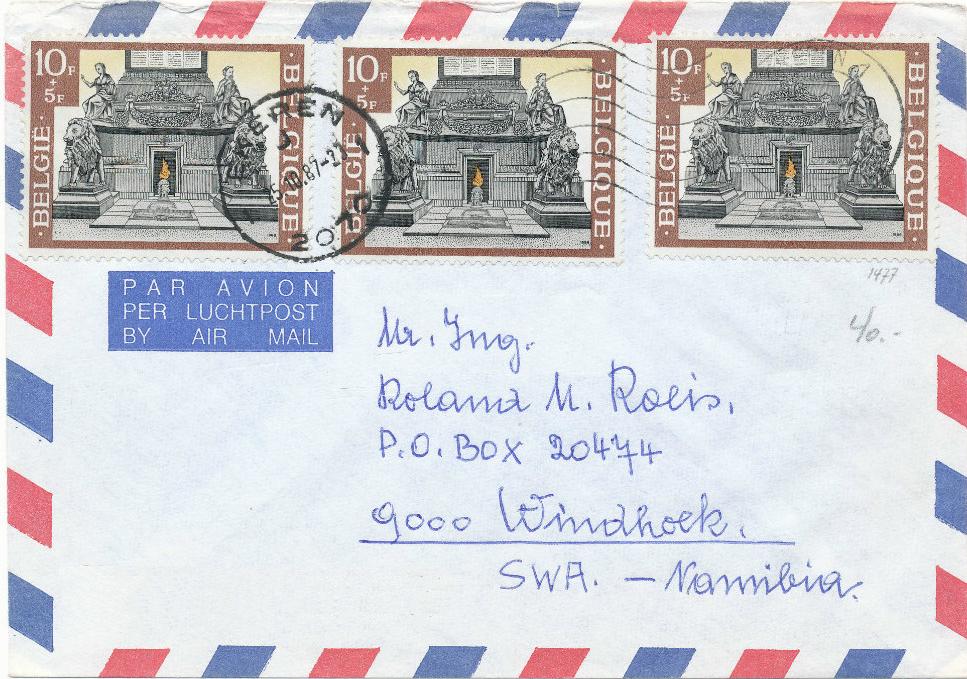 10F + 5F BELGIE · BELGIQUE
10F + 5F BELGIË · BELGIQUE
10F + 5F BELGIË · BELGIQUE
2070
PAR AVION
PER LUCHTPOST
BY AIR MAIL
1477
Mr. Ing.
Roland M. Roels.
P.O. BOX 20474
9000 Windhoek.
SWA. - Namibia.